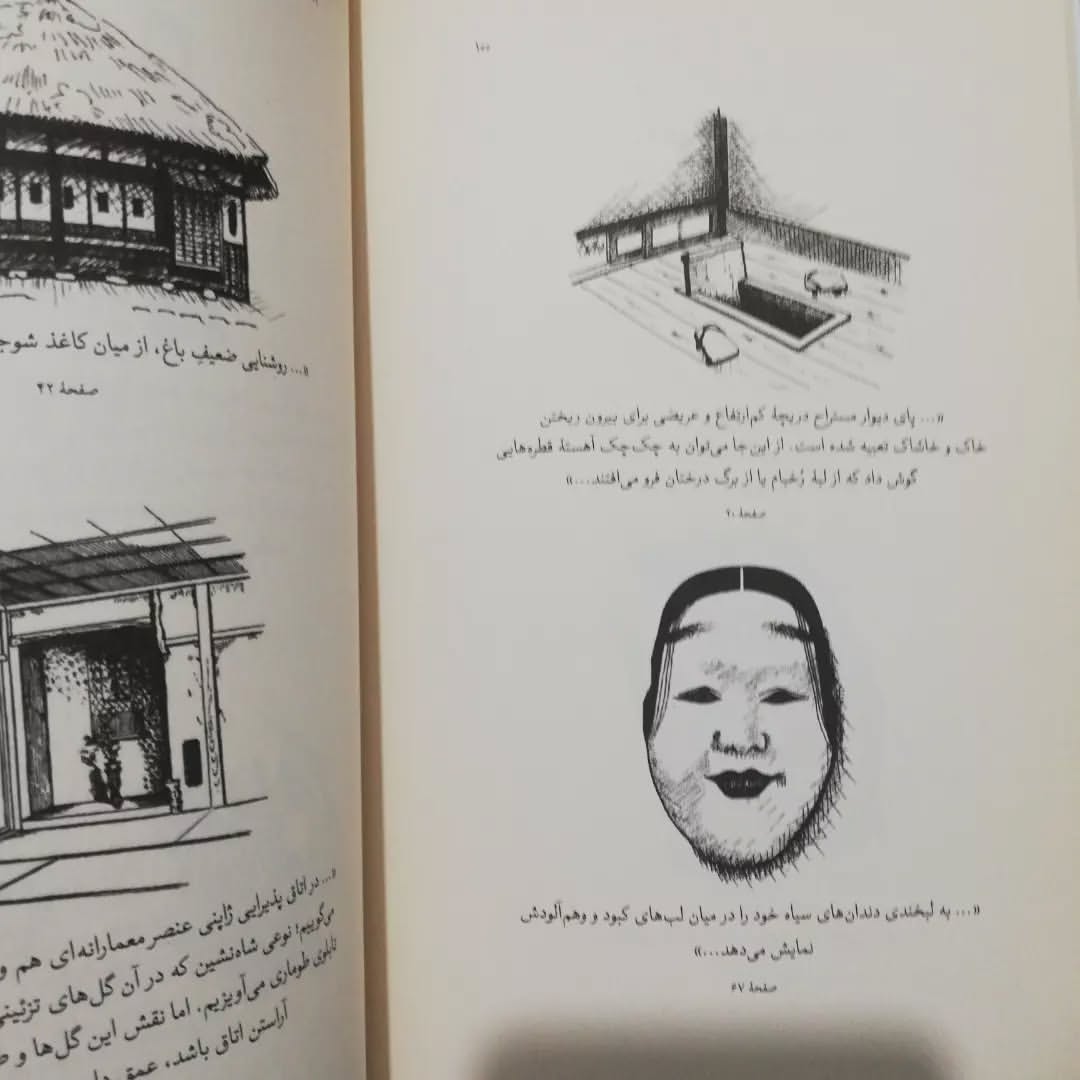 ۱۰۰
«... پای دیوار مستراح دریچهٔ کم‌ارتفاع و عریضی برای بیرون ریختن
خاک و خاشاک تعبیه شده است. از این‌جا می‌توان به چک‌چک آهستهٔ قطره‌هایی
گوش داد که از لبهٔ رُخبام یا از برگ درختان فرو می‌افتند...»
صفحهٔ ۲۰
«... به لبخندی دندان‌های سیاه خود را در میان لب‌های کبود و وهم‌آلودش
نمایش می‌دهد...»
صفحهٔ ۶۷
«... روشنایی ضعیفِ باغ، از میان کاغذ
صفحهٔ ۴۲
«... در اتاق پذیرایی ژاپنی عنصر معمارانه‌ای هم
می‌گوییم؛ نوعی شاه‌نشین که در آن گل‌های
تابلوی طوماری می‌آویزیم. اما نقش این گل‌ها و
آراستن اتاق باشد، عمق